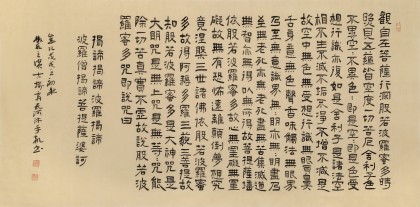 觀自在菩薩行深般若波羅蜜多時
照見五蘊皆空度一切苦厄舍利子色
不異空空不異色色即是空空即是色受
想行識亦復如是舍利子是諸法空
相不生不滅不垢不淨不增不減是
故空中無色無受想行識無眼耳鼻
舌身意無色聲香味觸法無眼界
乃至無意識界無無明亦無無明盡乃
至無老死亦無老死盡無苦集滅道
無智亦無得以無所得故菩提薩埵
依般若波羅蜜多故心無罣礙無罣
礙故無有恐怖遠離顛倒夢想究
竟涅槃三世諸佛依般若波羅蜜
多故得阿耨多羅三藐三菩提故
知般若波羅蜜多是大神咒是
大明咒是無上咒是無等等咒能
除一切苦真實不虛故說般若波
羅蜜多咒即說咒曰
揭諦揭諦波羅揭諦
波羅僧揭諦菩提薩婆訶